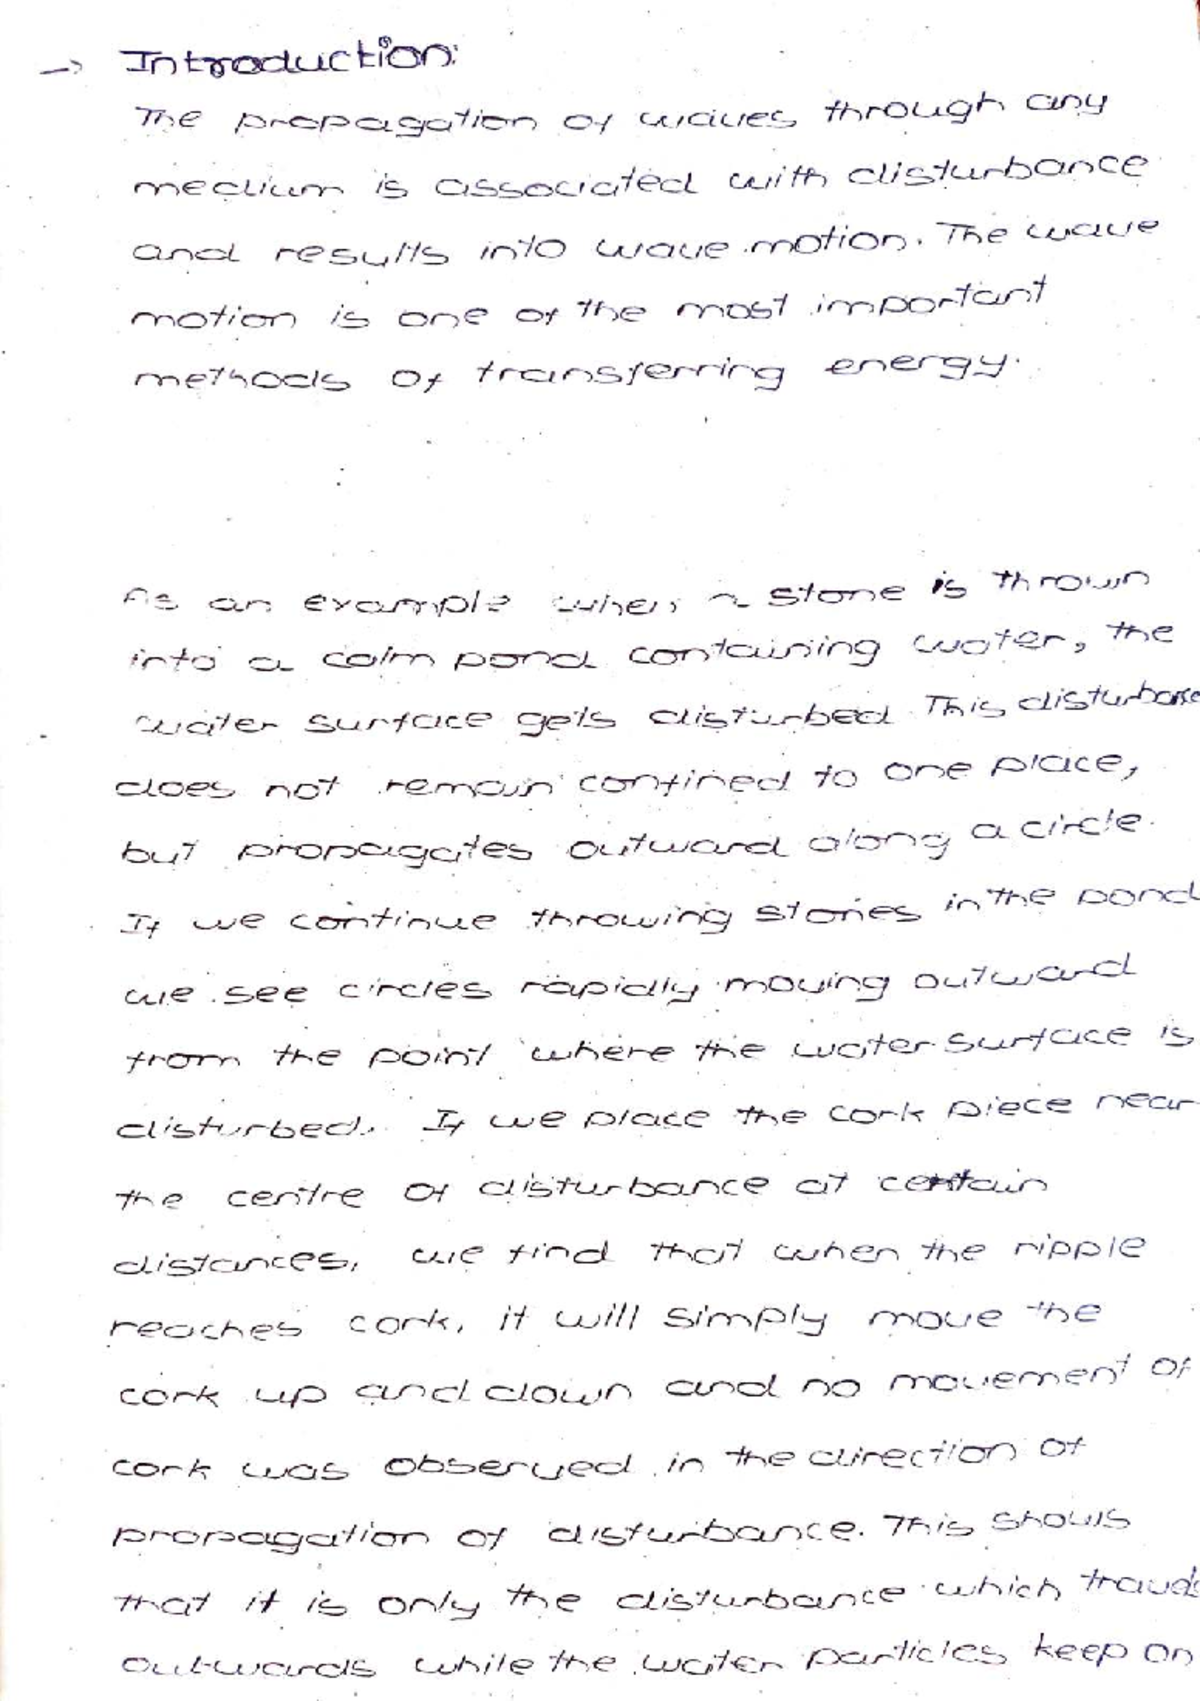 → Introduction:
The propagation of waves through any
medium is associated with disturbance
and results into wave motion. The wave
motion is one of the most important
methods of transferring energy.
As an example when a stone is thrown
into a calm pond containing water, the
water surface gets disturbed. This disturbance
does not remain confined to one place,
but propagates outward along a circle.
If we continue throwing stones in the pond
we see circles rapidly moving outward
from the point where the water surface is
disturbed. If we place the cork piece near
the centre of disturbance at certain
distances, we find that when the ripple
reaches cork, it will simply move the
cork up and down and no movement of
cork was observed in the direction of
propagation of disturbance. This shows
that it is only the disturbance which travels
outwards while the water particles keep on